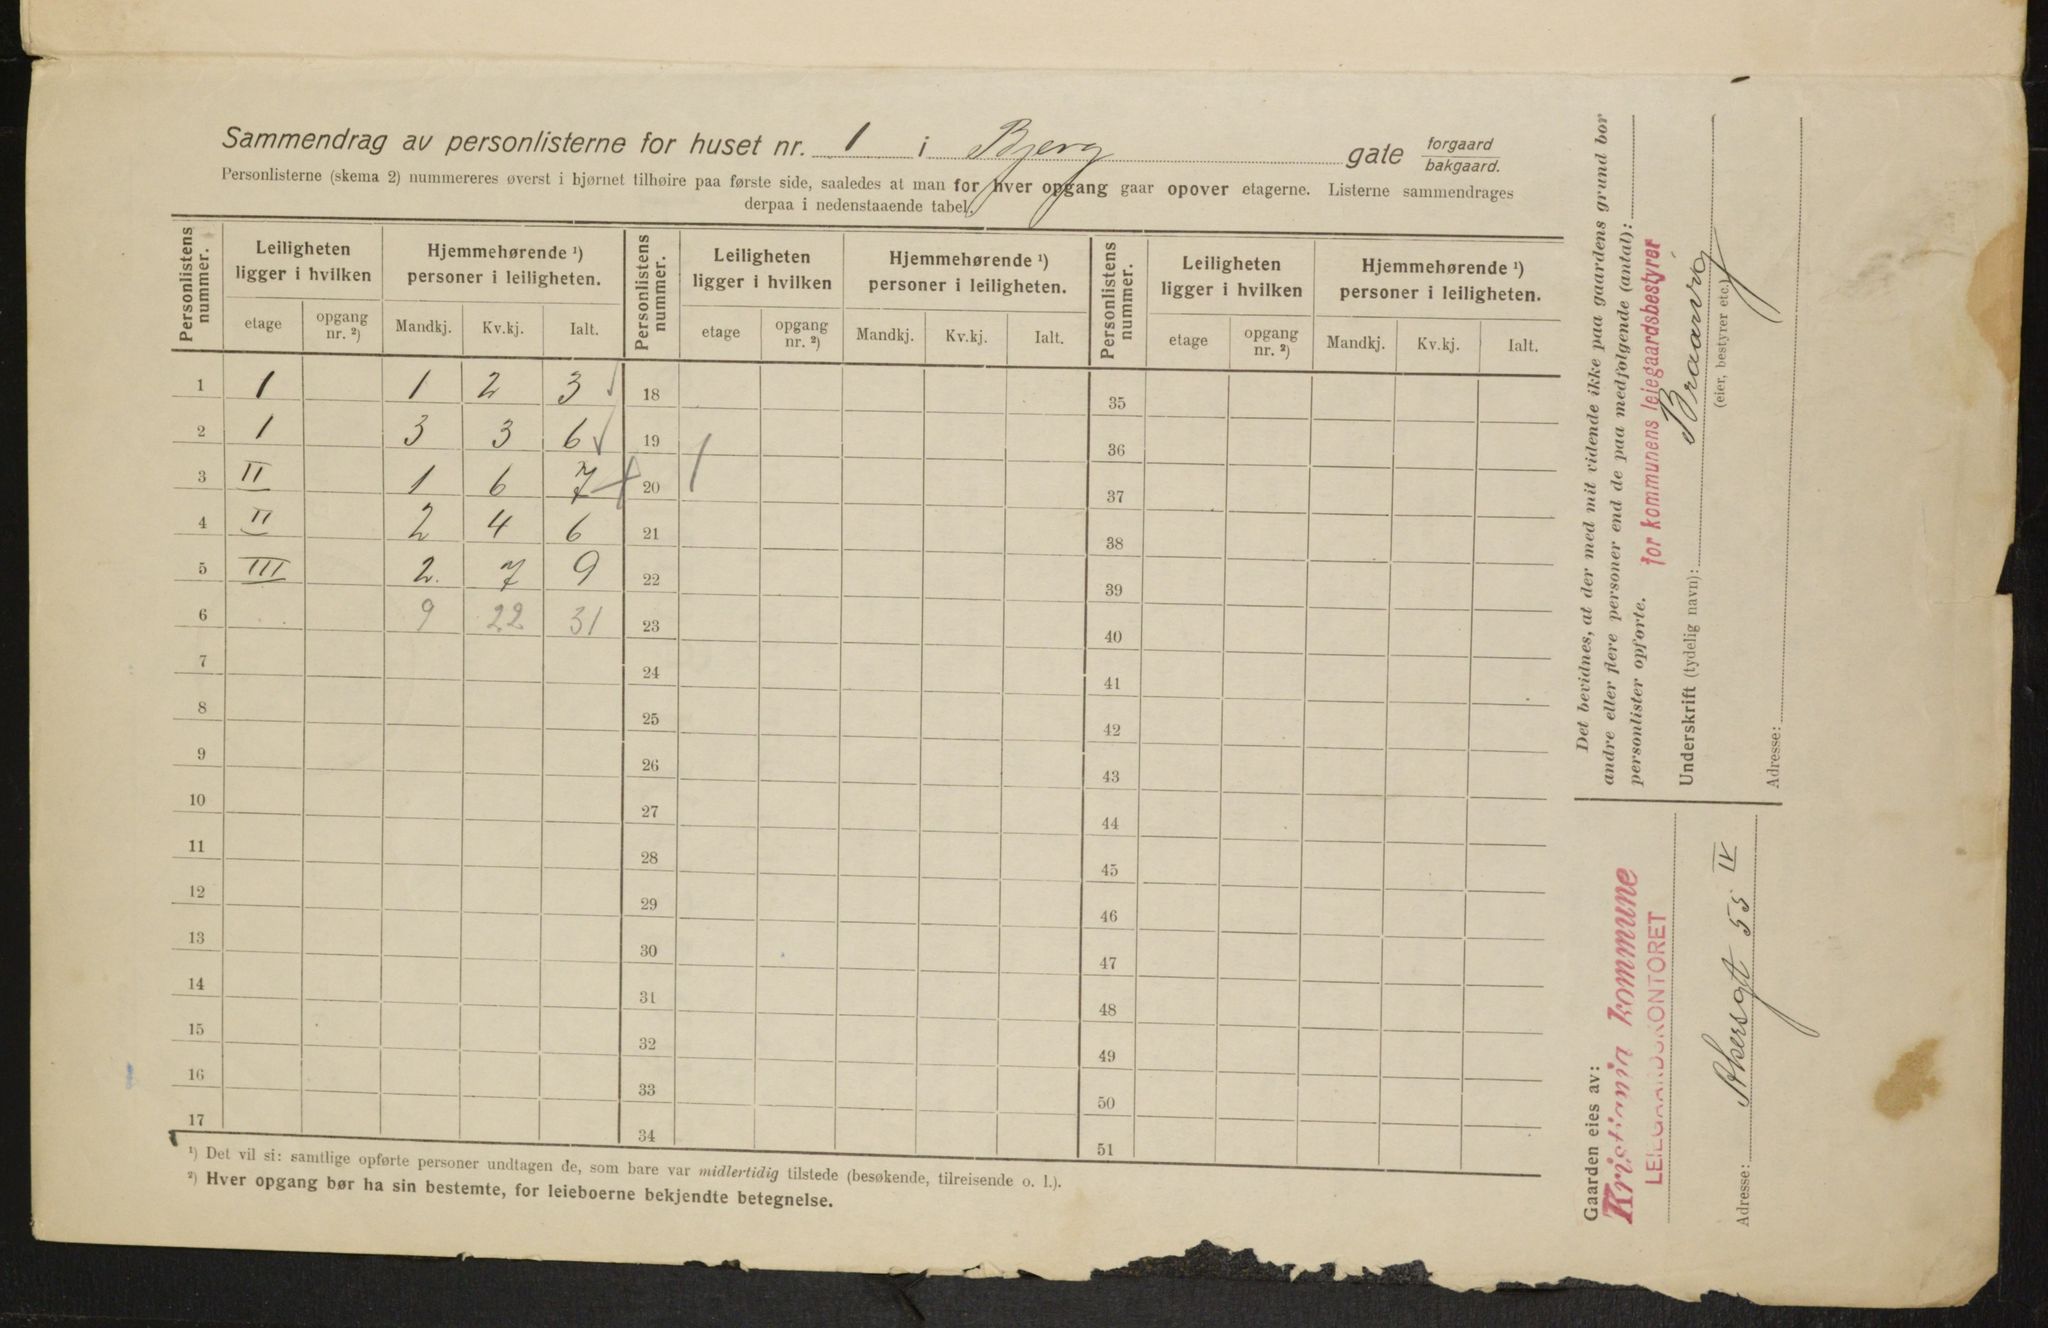 Sammendrag av personlisterne for huset nr. 1 i Bjerg gate forgaard bakgaard.
Personlisterne (skema 2) nummereres øverst i hjørnet tilhøire paa første side, saaledes at man for hver opgang gaar opover etagerne. Listerne sammendrages
derpaa i nedenstaaende tabel.
Personlistens nummer. Leiligheten ligger i hvilken Hjemmehørende ¹) personer i leiligheten. Personlistens nummer. Leiligheten ligger i hvilken Hjemmehørende ¹) personer i leiligheten. Personlistens nummer. Leiligheten ligger i hvilken Hjemmehørende ¹) personer i leiligheten.
etage opgang nr. ²) Mandkj. Kv.kj. Ialt. etage opgang nr. ²) Mandkj. Kv.kj. Ialt. etage opgang nr. ²) Mandkj. Kv.kj. Ialt.
1 1 1 2 3 18 35
2 1 3 3 6 19 36
3 II 1 6 7 20 37
4 II 2 4 6 21 38
5 III 2. 7 9 22 39
6 9 22 31 23 40
7 24 41
8 25 42
9 26 43
10 27 44
11 28 45
12 29 46
13 30 47
14 31 48
15 32 49
16 33 50
17 34 51
¹) Det vil si: samtlige opførte personer undtagen de, som bare var midlertidig tilstede (besøkende, tilreisende o. l.).
²) Hver opgang bør ha sin bestemte, for leieboerne bekjendte betegnelse.
Det bevidnes, at der med mit vidende ikke paa gaardens grund bor
andre eller flere personer end de paa medfølgende (antal):
personlister opførte.
for kommunens leiegaardsbestyrer
Underskrift (tydelig navn): Braarvig
(eier, bestyrer etc.)
Adresse:
Gaarden eies av:
Kristiania kommune
LEIEGAARDSKONTORET
Adresse: Akersgt 55 IV